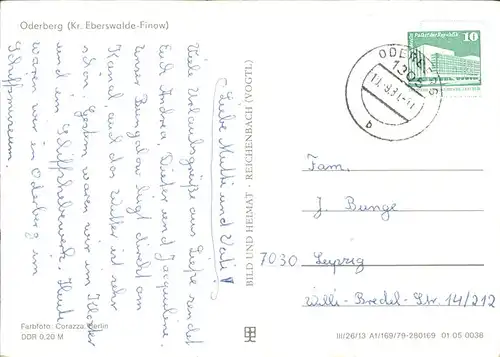 Oderberg (Kr. Eberswalde-Finow)
Liebe Mutti und Vati!
Viele Urlaubsgrüße aus Liepe sendet
Euch Andrea, Dieter und Jacqueline.
Unser Bungalow liegt direkt am
Kanal, und das Wetter ist sehr
schön. Gestern waren wir im Kloster
und im Schiffshebewerk. Heute
waren wir in Oderberg im
Schiffmuseum.
BILD UND HEIMAT · REICHENBACH (VOGTL)
Palast der Republik
10
ODERBERG
1305
b
Fam.
J. Bunge
7030 Leipzig
Willi-Bredel-Str. 14/212
Farbfoto: Corazza, Berlin
DDR 0,20 M
III/26/13 A1/169/79-280169 01 05 0036